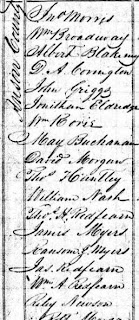 Anson County
Jno Morris
Wm Broadway
Albert Blakeny
D. A. Covington
John Griggs
Jonathan Eldredge
Wm
May Buchanan
David Morgan
Thos Huntley
William Nash
Thos. A. Redfearn
James Myers
Ransom Myers
Jas. Redfearn
Wm A. Redfearn
Riley Newsom